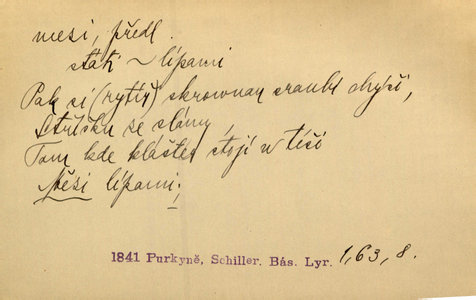 mezi, předl.
stát ~ lípami
Pak si (rytíř) skrownau srault chýši,
Střišku se slámy,
Tam kde klášter stojí w tíši
Mězi lípami;
1841 Purkyně, Schiller. Bás. Lyr. 1,63,8.